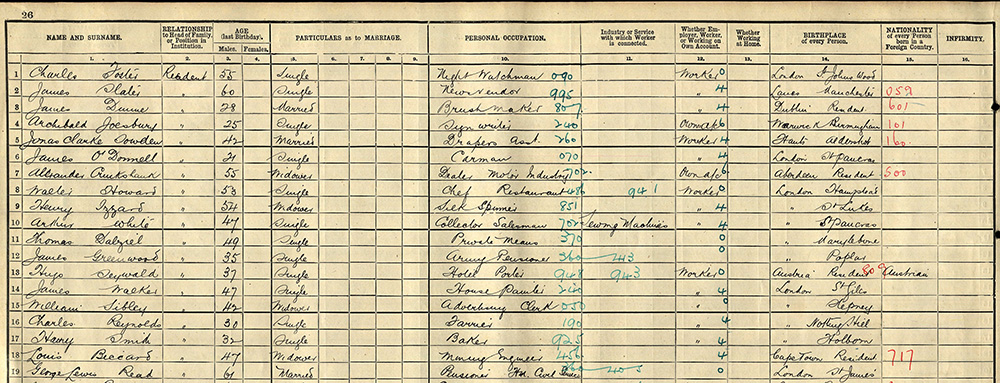 26
NAME AND SURNAME. RELATIONSHIP to Head of Family, or Position in Institution. AGE (last Birthday). Males. Females. PARTICULARS as to MARRIAGE. PERSONAL OCCUPATION. Industry or Service with which Worker is connected. Whether Employer, Worker, or Working on Own Account. Whether Working at Home. BIRTHPLACE of every Person. NATIONALITY of every Person born in a Foreign Country. INFIRMITY.
1. 2. 3. 4. 5. 6. 7. 8. 9. 10. 11. 12. 13. 14. 15. 16.
1 Charles Foster Resident 55 Single Night Watchman 090 Worker 0 London St Johns Wood
2 James Slater " 60 Single Newsvendor 995 " 4 Lancs Manchester 052
3 James Dunne " 28 Married Brush Maker 807 " 4 Dublin Resident 601
4 Archibald Joesbury " 25 Single Sign writer 240 Own a/c 6 Warwick Birmingham 161
5 Jonas Clarke Cowden " 42 Married Drapers Asst. 260 Worker 4 Hants Aldershot 160
6 James O'Donnell " 21 Single Carman 070 " 4 London St Pancras
7 Alexander Cruikshank " 55 Widower Dealer Motor Industry 702 Own a/c 6 Aberdeen Resident 500
8 Walter Howard " 53 Single Chef Restaurant 946 941 Worker 0 London Hampstead
9 Henry Izzard " 54 Widower Silk Spinner 851 " 4 " St Lukes
10 Arthur White " 47 Single Collector Salesman 702 Sewing Machines " 4 " St Pancras
11 Thomas Dalziel " 49 Single Private Means 370 0 " Marylebone
12 James Greenwood " 35 Single Army Pensioner 360 413 0 " Poplar
13 Hugo Seywald " 37 Single Hotel Porter 948 943 Worker 0 Austria Resident 809 Austrian
14 James Walker " 47 Single House Painter 240 " 4 London St Giles
15 William Sibley " 42 Widower Advertising Clerk 050 " 0 " Stepney
16 Charles Reynolds " 30 Single Farrier 190 " 4 " Notting Hill
17 Harry Smith " 32 Single Baker 925 " 4 " Holborn
18 Louis Beccard " 47 Widower Mining Engineer 456 " 4 Cape Town Resident 717
19 George Lewis Read " 61 Married Pensioner Civil 405 0 London St James